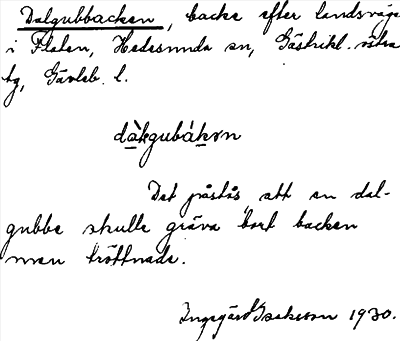 Dalgubbacken, backe efter landsväge
i Flaten, Hedesunda sn, Gästrikl. östra
tg, Gävleb. l.
dàkgubákvn
Det påstås, att en dal-
gubbe skulle gräva bort backen
men tröttnade.
Ingegärd Isaksson 1930.